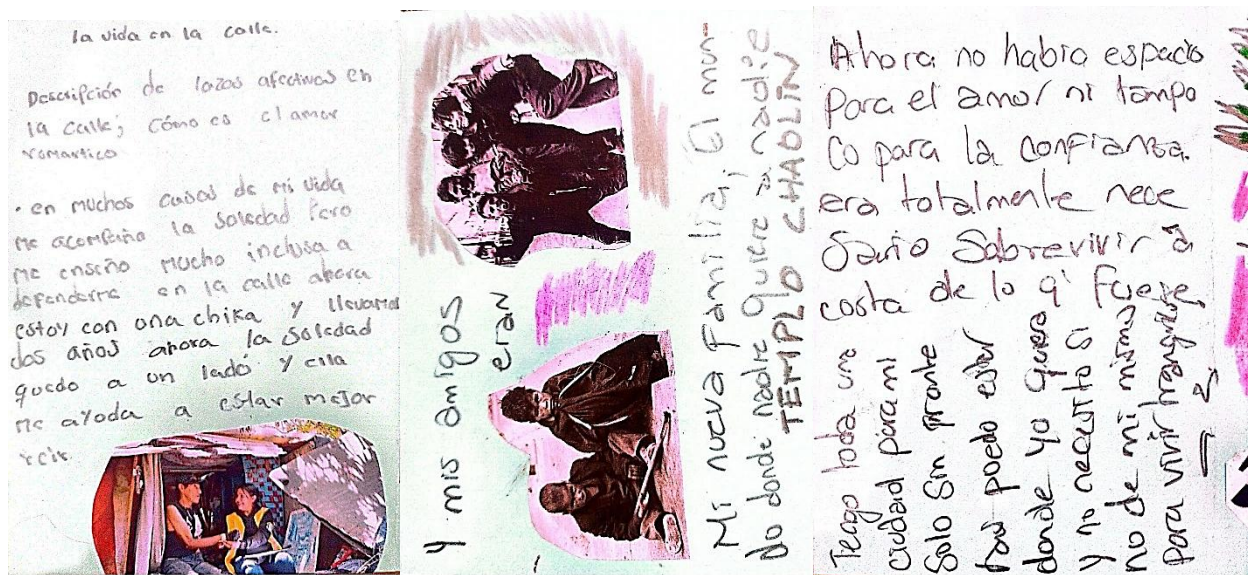 la vida en la calle.
Descripción de lazos afectivos en
la calle; cómo es el amor
romantico
• en muchos casos de mi vida
me acompaño la soledad pero
me enseño mucho inclusa a
defenderme en la calle ahora
estoy con una chika y llevamos
dos años ahora la soledad
quedo a un lado y ella
me ayoda a estar mejor
y mis amigos
eran
Mi nueva familia, El mun-
do donde nadie quiere a nadie
TEMPLO CHABLIN
Ahora no habia espacio
para el amor ni tampo
co para la confianza.
era totalmente nece
sario sobrevivir a
costa de lo q' fuese
Tengo toda una
ciudad para mi
solo sin pronte
ras puedo estar
donde yo quiera
y no necesito si
no de mi mismo
para vivir tranquilo